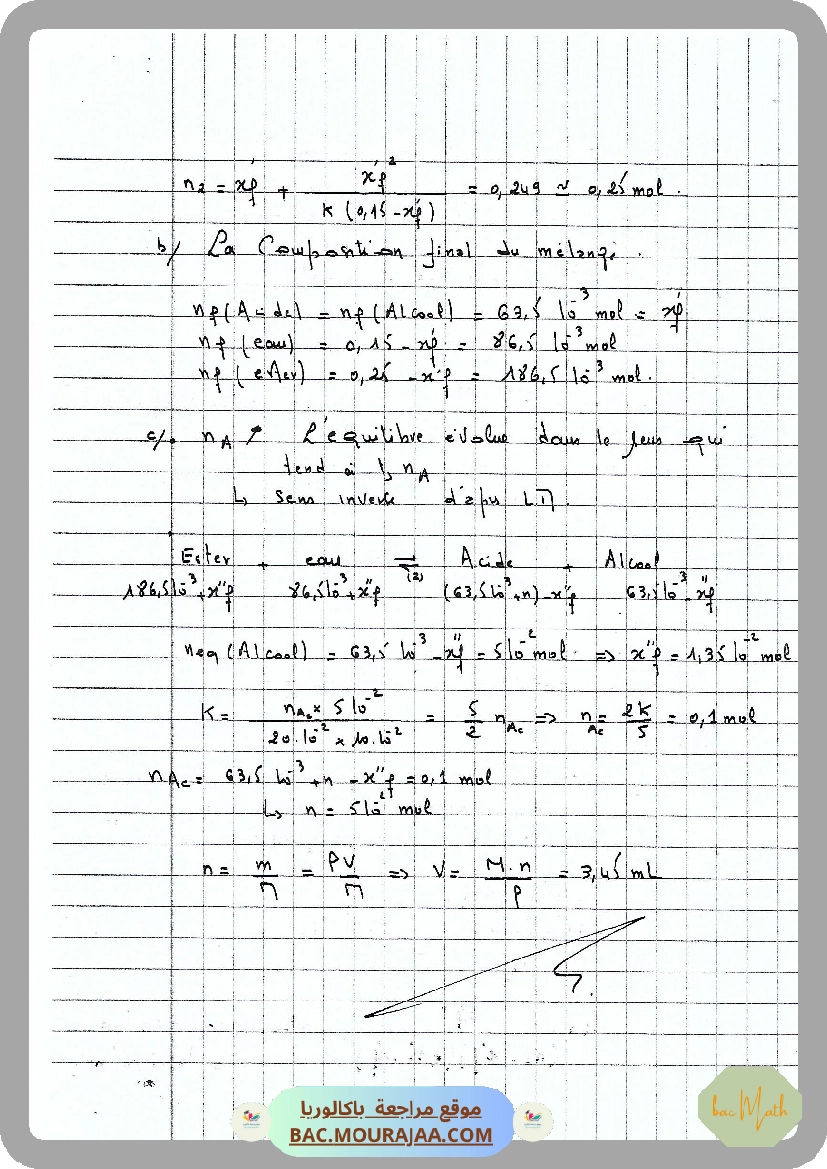 n2 = x'f + x'f² / K (0,15 - x'f) = 0,249 ≈ 0,25 mol.
b/ La Composition final du mélange.
nf (Acide) = nf (Alcool) = 63,5 10^-3 mol = x'f
nf (eau) = 0,15 - x'f = 86,5 10^-3 mol
nf (ester) = 0,25 - x'f = 186,5 10^-3 mol.
c/. nA ↗ L'équilibre évolue dans le sens qui
tend à ↘ nA
↳ sens inverse d'apès LM.
Ester + eau ⇌ (2) Acide + Alcool
186,5 10^-3 + x''f 86,5 10^-3 + x''f (63,5 10^-3 + n) - x''f 63,5 10^-3 - x''f
neq (Alcool) = 63,5 10^-3 - x''f = 5 10^-2 mol => x''f = 1,35 10^-2 mol
K = nAc × 5 10^-2 / 20.10^-2 × 10.10^-2 = 5/2 nAc => nAc = 2K/5 = 0,1 mol
nAc = 63,5 10^-3 + n - x''f = 0,1 mol
↳ n = 5 10^-2 mol
n = m/M = ρV/M => V = M.n/ρ = 3,45 mL
موقع مراجعة باكالوريا
BAC.MOURAJAA.COM
bac Math